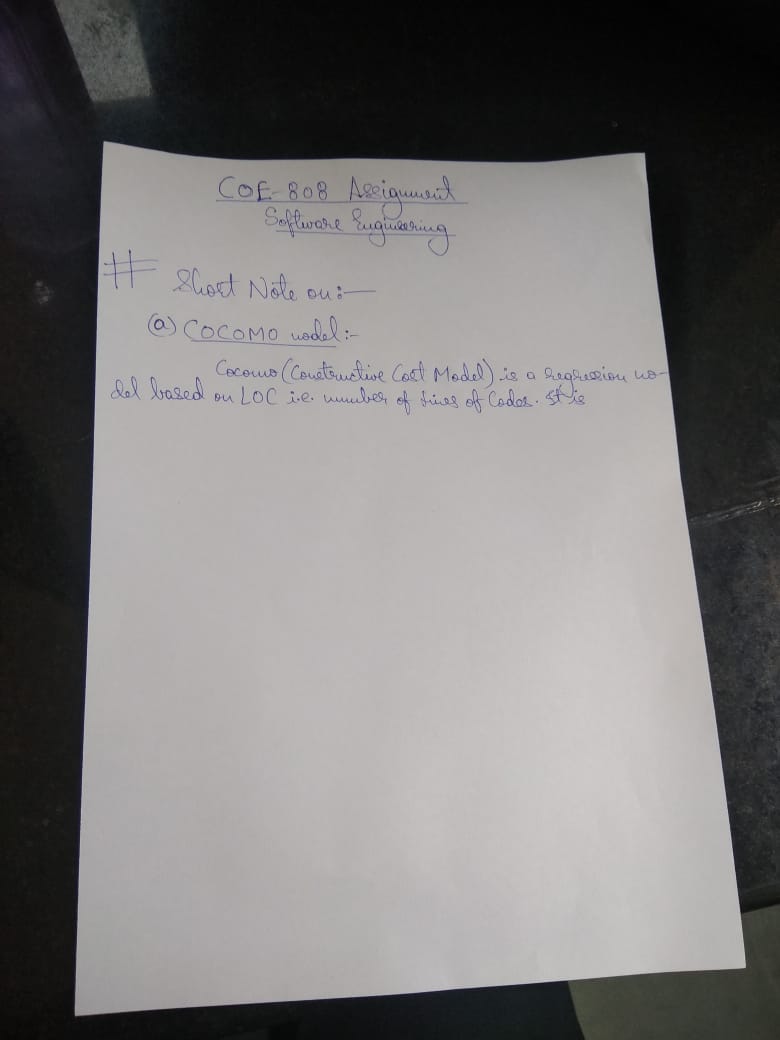 COE-808 Assignment
Software Engineering
# Short Note on:-
(a) COCOMO model:-
Cocomo (Constructive Cost Model) is a regression mo-
del based on LOC i.e. number of Lines of Codes. It is